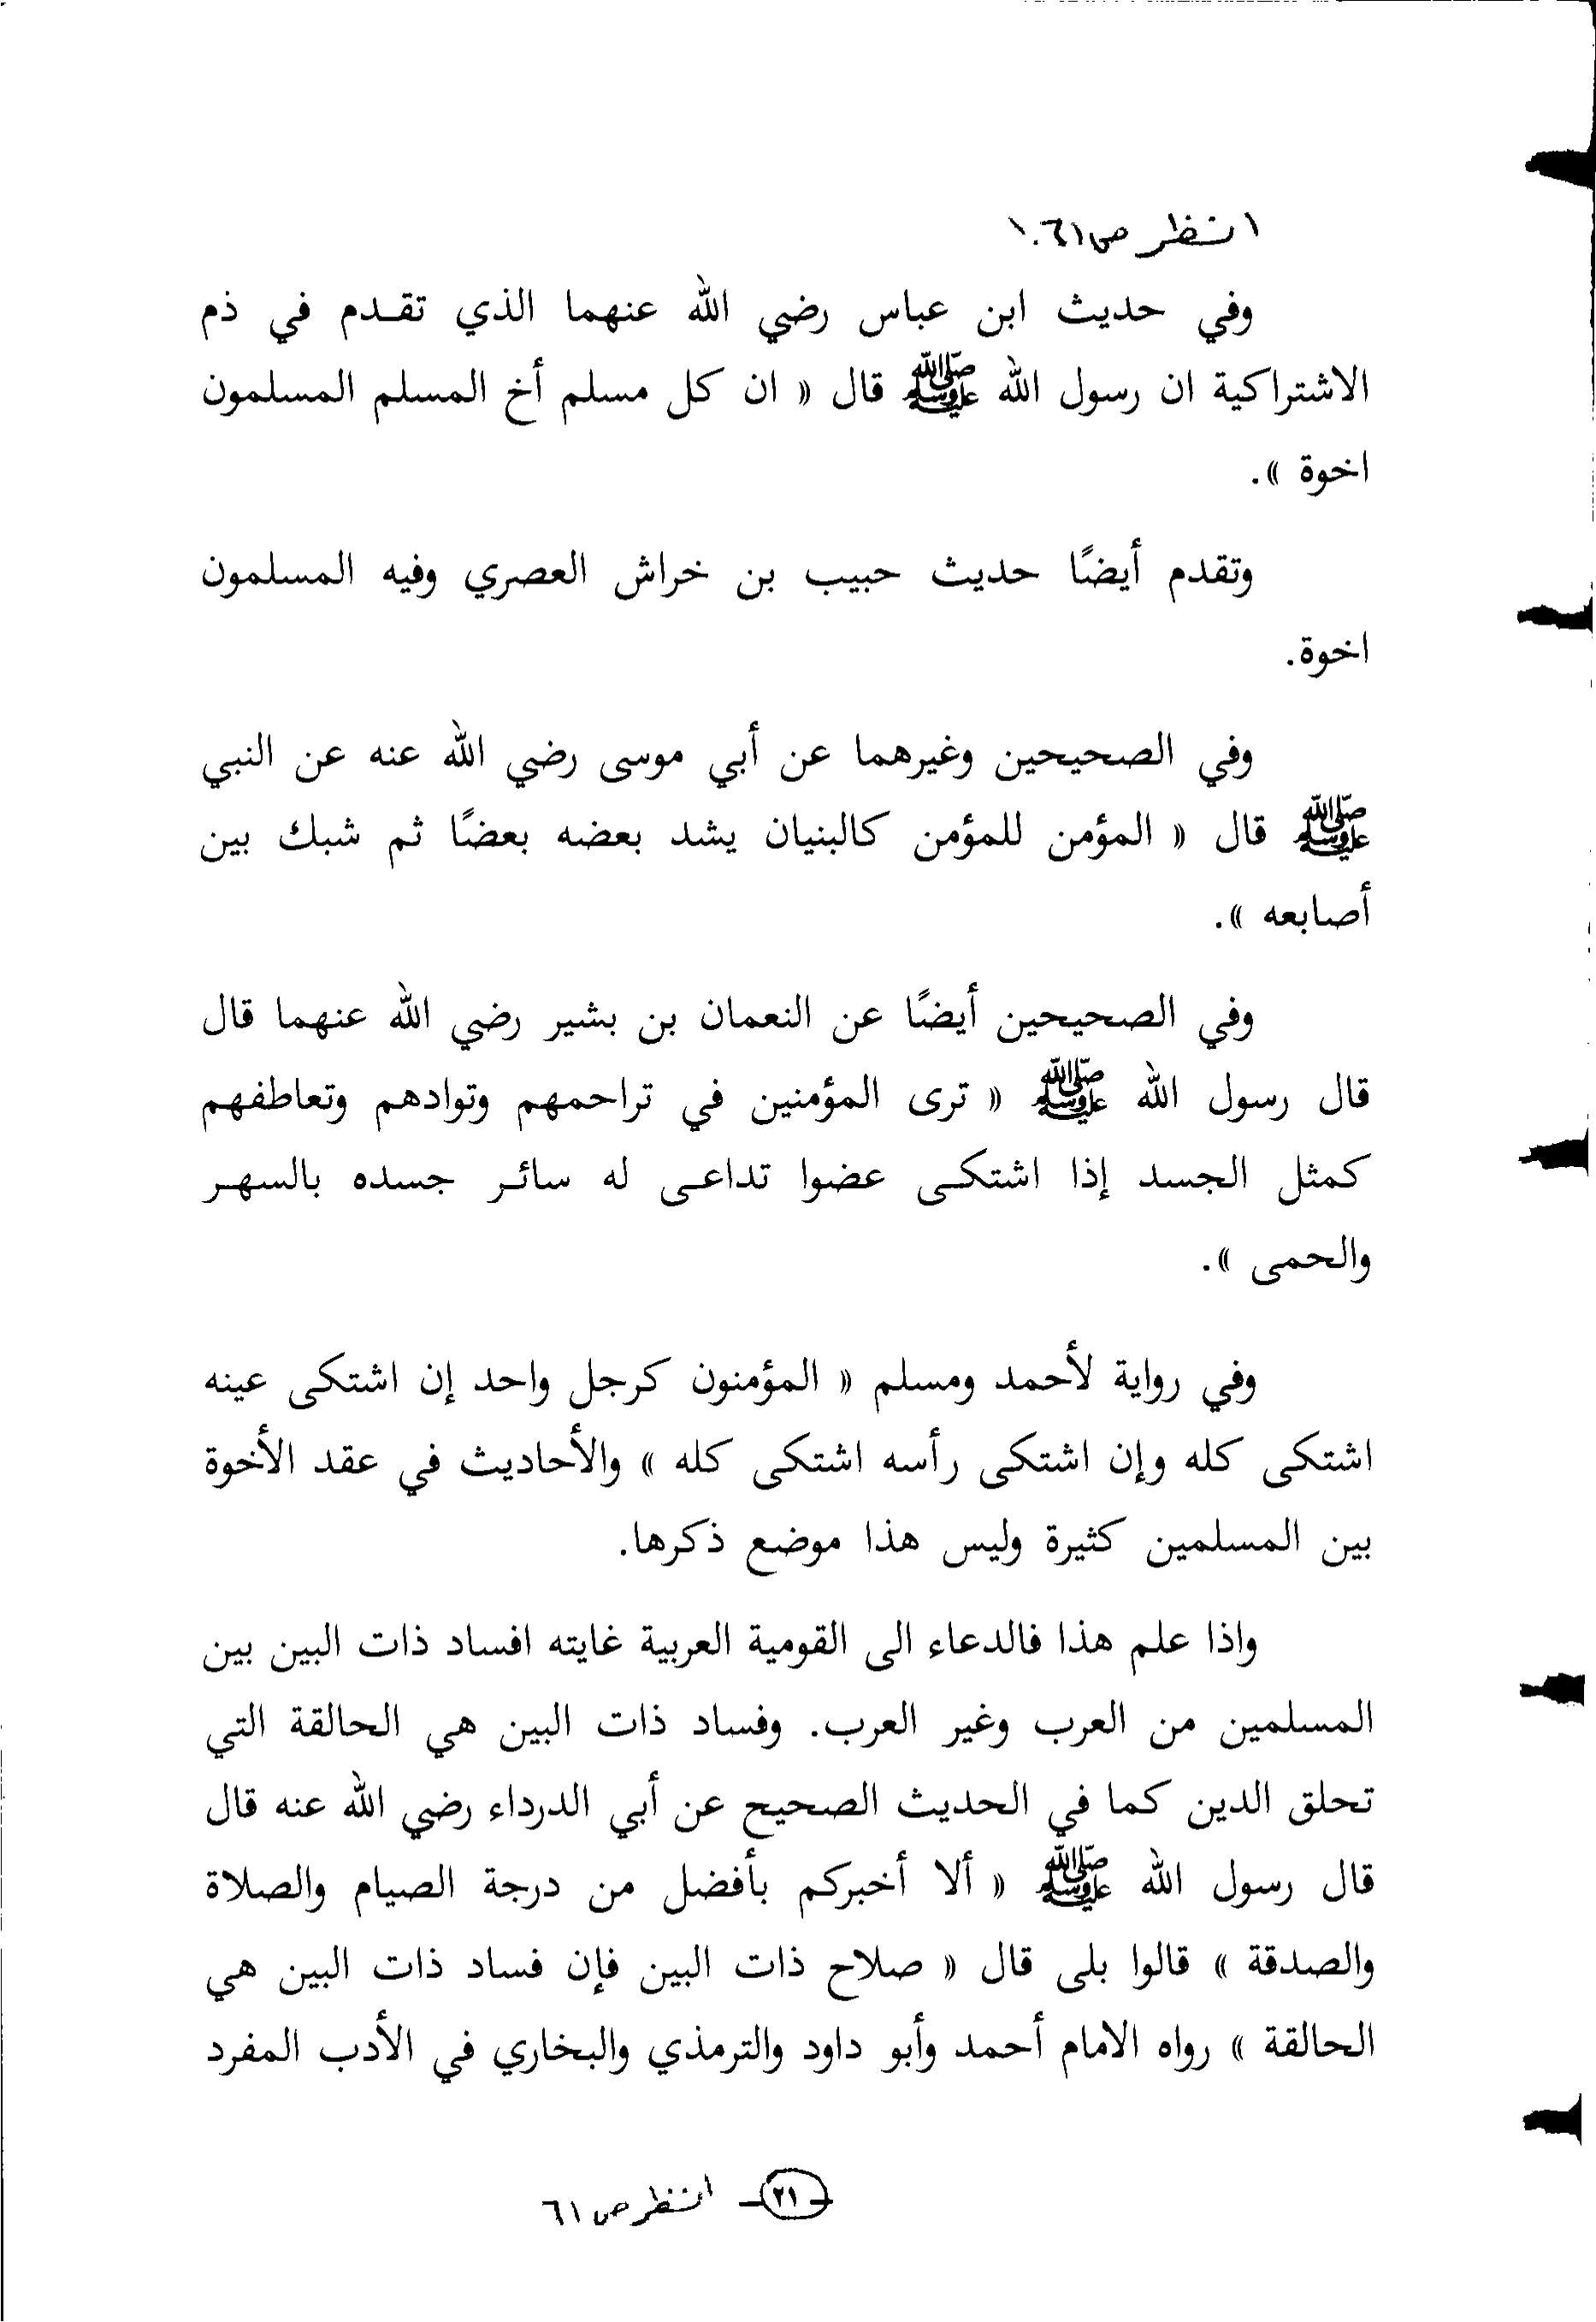 انظر ص٦١.١
وفي حديث ابن عباس رضي الله عنهما الذي تقـدم في ذم
الاشتراكية ان رسول الله ﷺ قال « ان كل مسلم أخ المسلم المسلمون
اخوة ».
وتقدم أيضًا حديث حبيب بن خراش العصري وفيه المسلمون
اخوة.
وفي الصحيحين وغيرهما عن أبي موسى رضي الله عنه عن النبي
ﷺ قال « المؤمن للمؤمن كالبنيان يشد بعضه بعضًا ثم شبك بين
أصابعه ».
وفي الصحيحين أيضًا عن النعمان بن بشير رضي الله عنهما قال
قال رسول الله ﷺ « ترى المؤمنين في تراحمهم وتوادهم وتعاطفهم
كمثل الجسد إذا اشتكـى عضوا تداعـى له سائـر جسده بالسهـر
والحمى ».
وفي رواية لأحمد ومسلم « المؤمنون كرجل واحد إن اشتكى عينه
اشتكى كله وإن اشتكى رأسه اشتكى كله » والأحاديث في عقد الأخوة
بين المسلمين كثيرة وليس هذا موضع ذكرها.
واذا علم هذا فالدعاء الى القومية العربية غايته افساد ذات البين بين
المسلمين من العرب وغير العرب. وفساد ذات البين هي الحالقة التي
تحلق الدين كما في الحديث الصحيح عن أبي الدرداء رضي الله عنه قال
قال رسول الله ﷺ « ألا أخبركم بأفضل من درجة الصيام والصلاة
والصدقة » قالوا بلى قال « صلاح ذات البين فإن فساد ذات البين هي
الحالقة » رواه الامام أحمد وأبو داود والترمذي والبخاري في الأدب المفرد
- ٢١ - انظر ص ٦١